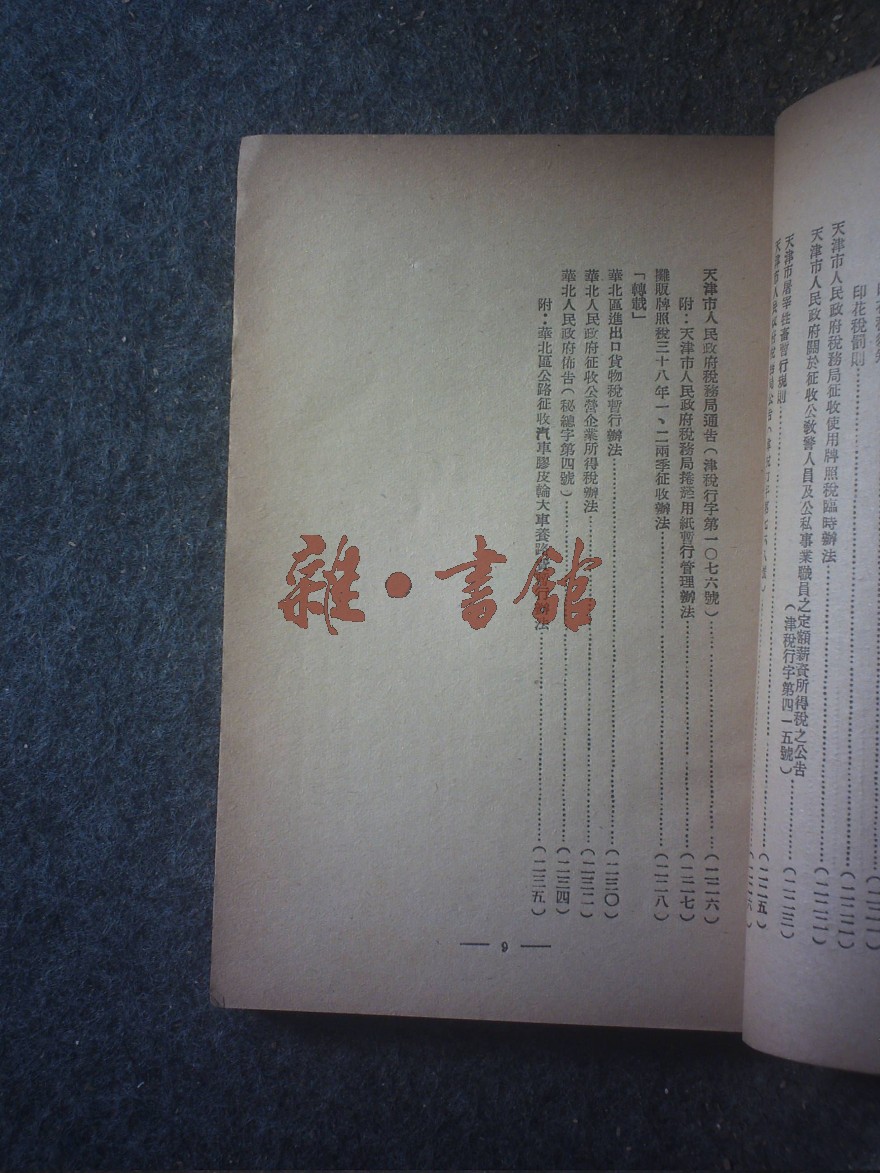 印花稅罰則
天津市人民政府稅務局征收使用牌照稅臨時辦法……(一二二)
天津市人民政府關於征收公敎警人員及公私事業職員之定額薪資所得稅之公告
(津稅行字第四一五號)……(一二三)
天津市屠宰牲畜暫行規則……(一二五)
天津市人民政府稅務局通告(津稅行字第一〇七六號)……(一二六)
附：天津市人民政府稅務局捲菸用紙暫行管理辦法……(一二七)
攤販牌照稅三十八年一、二兩季征收辦法……(一二八)
「轉載」
華北區進出口貨物稅暫行辦法……(一三〇)
華北人民政府征收公營企業所得稅辦法……(一三二)
華北人民政府佈告(秘總字第四號)……(一三四)
附：華北區公路征收汽車膠皮輪大車養路辦法……(一三五)
— 9 —
雜·書館